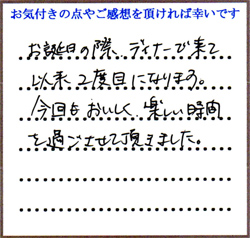 お気付きの点やご感想を頂ければ幸いです
お誕日の際、ディナーで来て
以来2度目になります。
今回もおいしく、楽しい時間
を過ごさせて頂きました。